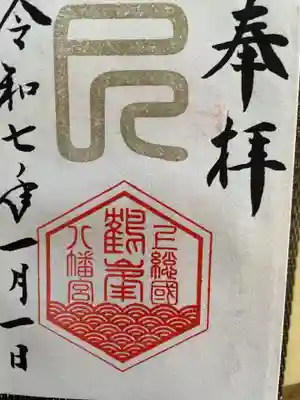 奉拝
上総國
鶴峯
八幡宮
令和七年一月一日